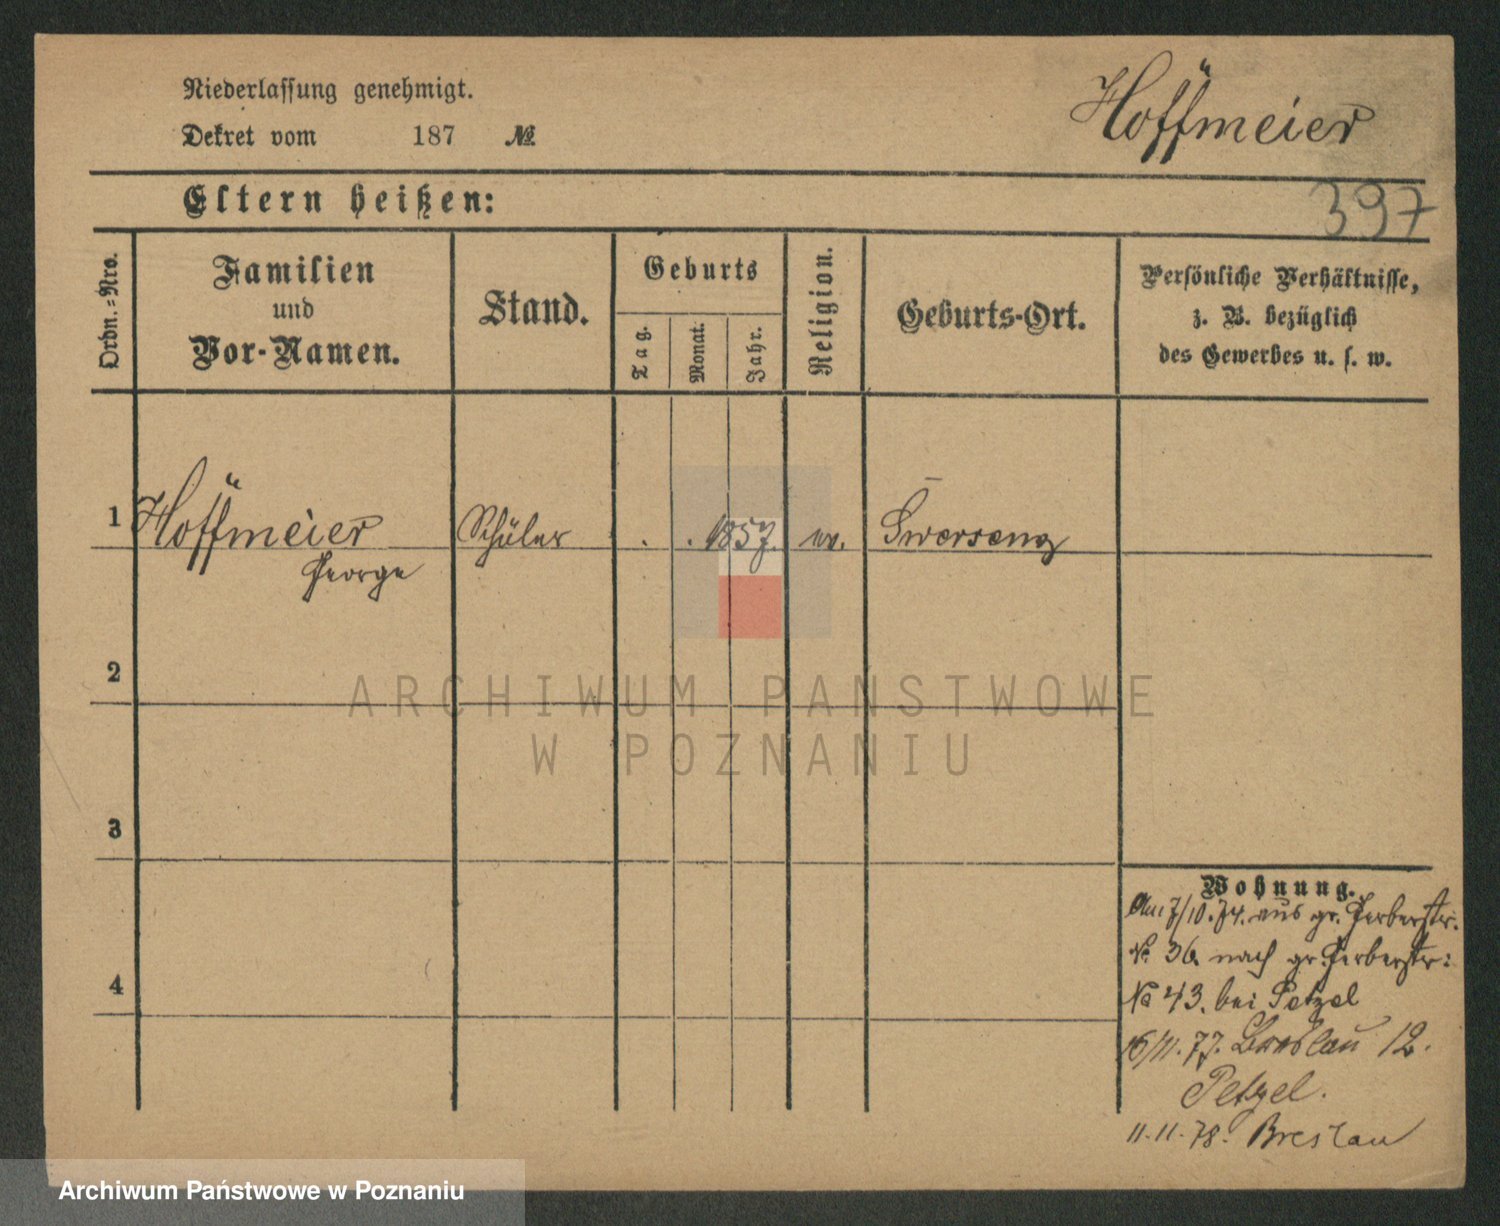 Niederlassung genehmigt.
Dekret vom 187 №
Hoffmeier
397
Eltern heißen:
Ordn.=Nro.
Familien
und
Vor-Namen.
Stand.
Geburts
Tag.
Monat.
Jahr.
Religion.
Geburts-Ort.
Persönliche Verhältnisse,
z. B. bezüglich
des Gewerbes u. s. w.
1 Hoffmeier Schüler . . 1857. Swersenz
George
2
3
4
Wohnung.
Am 7/10.74. aus gr. Gerberstr.
№ 36 nach gr. Gerberstr:
No 43. bei Petzel
16/11.77. Breslau 12.
Petzel.
11.11.78. Breslau
ARCHIWUM PAŃSTWOWE
W POZNANIU
Archiwum Państwowe w Poznaniu